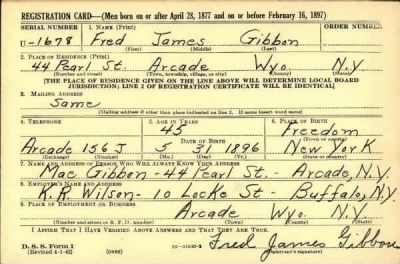 REGISTRATION CARD—(Men born on or after April 28, 1877 and on or before February 16, 1897)
SERIAL NUMBER 1. NAME (Print) ORDER NUMBER
U-1678 Fred James Gibbon
(First) (Middle) (Last)
2. PLACE OF RESIDENCE (Print)
44 Pearl St. Arcade Wyo. N.Y.
(Number and street) (Town, township, village, or city) (County) (State)
[THE PLACE OF RESIDENCE GIVEN ON THE LINE ABOVE WILL DETERMINE LOCAL BOARD
JURISDICTION; LINE 2 OF REGISTRATION CERTIFICATE WILL BE IDENTICAL]
3. MAILING ADDRESS
Same
[Mailing address if other than place indicated on line 2. If same insert word same]
4. TELEPHONE 5. AGE IN YEARS 6. PLACE OF BIRTH
45 Freedom
DATE OF BIRTH (Town or county)
Arcade 156J 5 31 1896 New York
(Exchange) (Number) (Mo.) (Day) (Yr.) (State or country)
7. NAME AND ADDRESS OF PERSON WHO WILL ALWAYS KNOW YOUR ADDRESS
Mae Gibbon - 44 Pearl St. - Arcade, N.Y.
8. EMPLOYER'S NAME AND ADDRESS
K.R. Wilson - 10 Locke St - Buffalo, N.Y.
9. PLACE OF EMPLOYMENT OR BUSINESS
Arcade Wyo. N.Y.
(Number and street or R. F. D. number) (Town) (County) (State)
I AFFIRM THAT I HAVE VERIFIED ABOVE ANSWERS AND THAT THEY ARE TRUE.
D. S. S. Form 1
(Revised 4-1-42) (over)
Fred James Gibbon
(Registrant's signature)